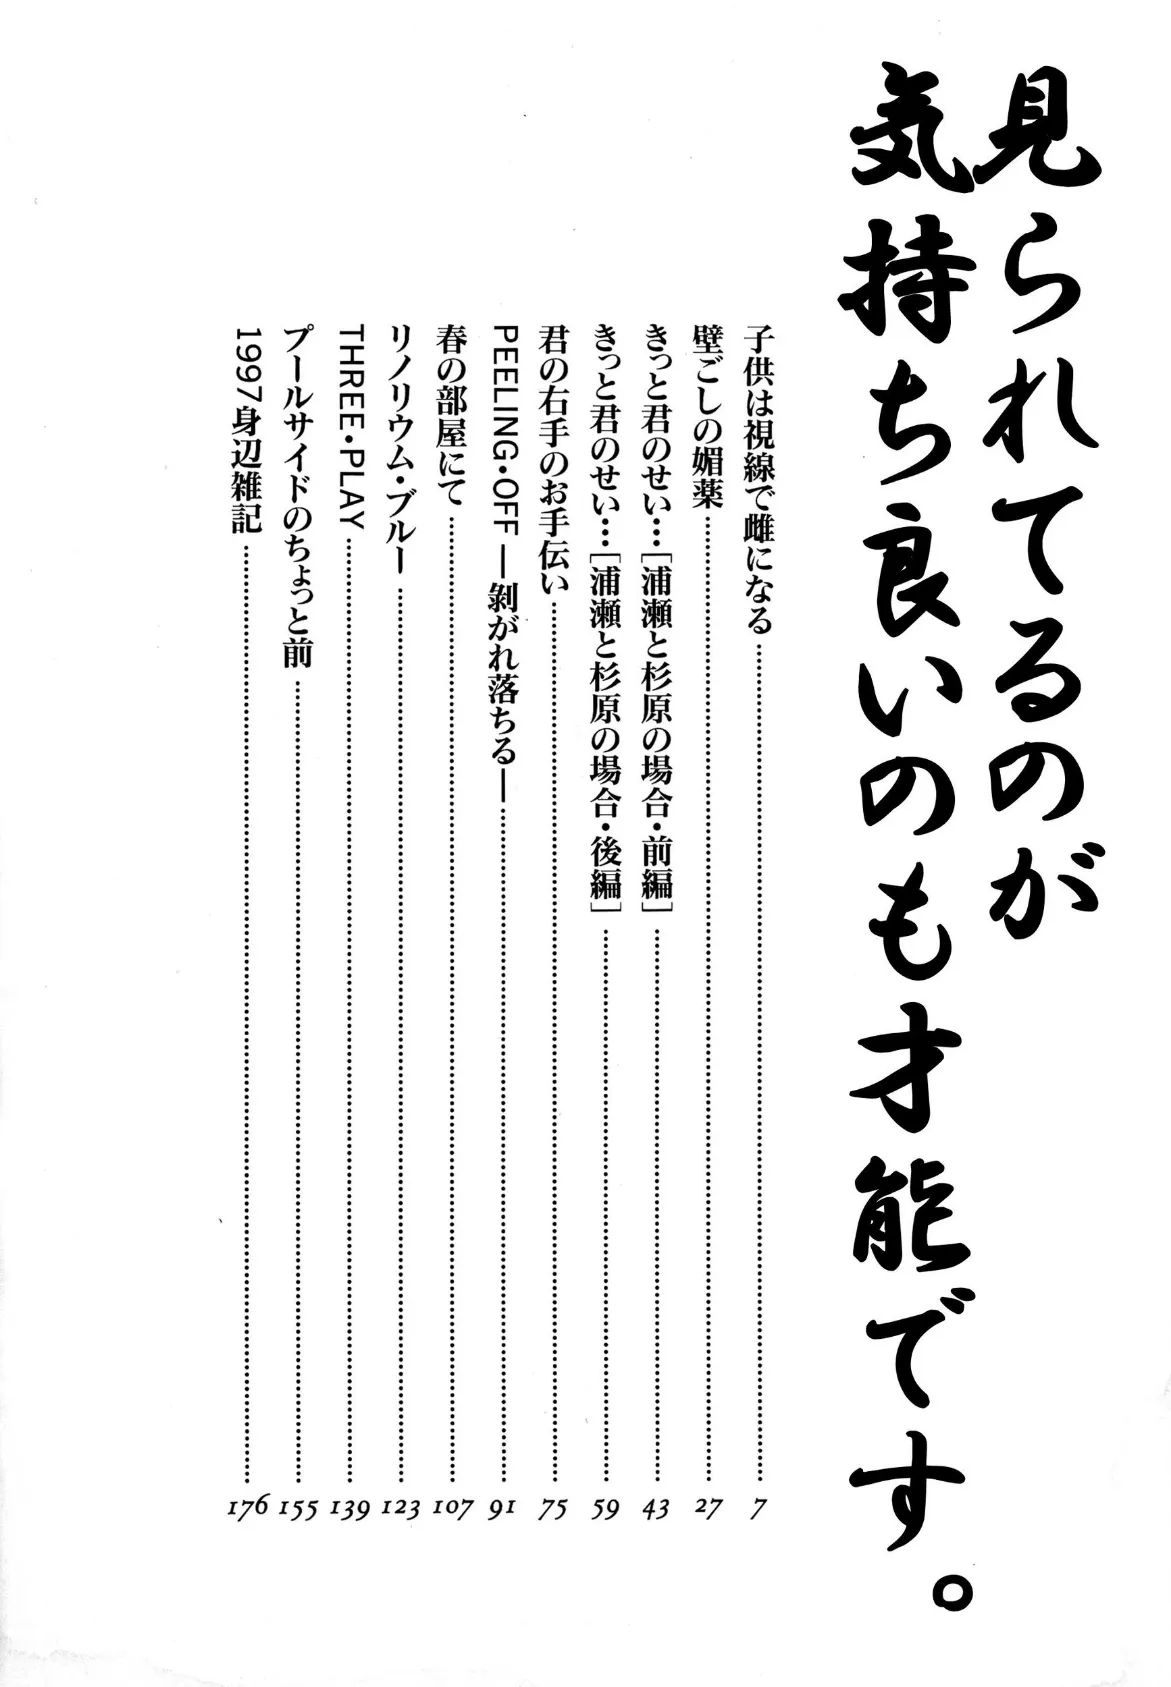 見られてるのが
気持ち良いのも才能です。
子供は視線で雌になる 7
壁ごしの媚薬 27
きっと君のせい…［浦瀬と杉原の場合・前編］ 43
きっと君のせい…［浦瀬と杉原の場合・後編］ 59
君の右手のお手伝い 75
PEELING・OFF ―剥がれ落ちる― 91
春の部屋にて 107
リノリウム・ブルー 123
THREE・PLAY 139
プールサイドのちょっと前 155
1997身辺雑記 176